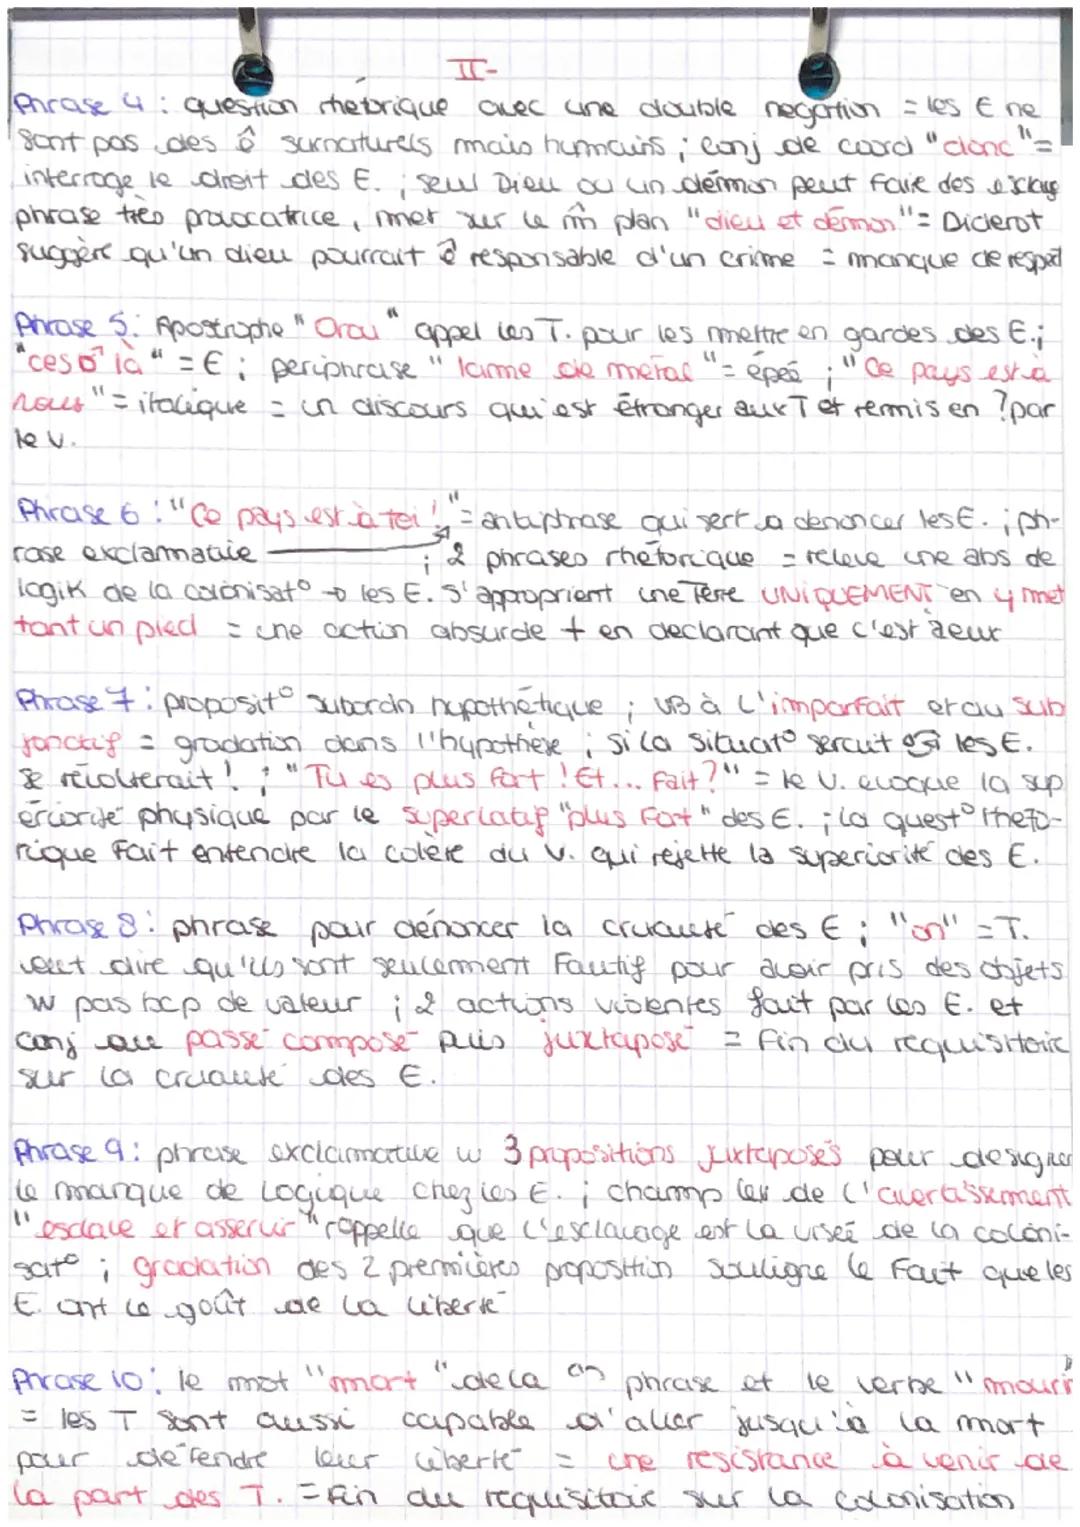 II-
Phrase 4 : question rhétorique avec une double negation = les E ne
sont pas des ê surnaturels mais humains ; conj de coord "donc" =
interroge le droit des E. ; seul Dieu ou un démon peut faire des esclave
phrase très provocatrice, met sur le m̂ plan "dieu et démon" = Diderot
suggère qu'un dieu pourrait ê responsable d'un crime = manque de respet
Phrase 5 : Apostrophe "Orou" appel les T. pour les mettre en gardes des E. ;
"ces ♂ là" = E ; periphrase "lame de métal" = épeé ; "Ce pays est à
nous" = italique = un discours qui est étranger aux T et remis en ? par
le V.
Phrase 6 : "Ce pays est à toi !" = antiphrase qui sert a denoncer les E. ; ph-
rase exclamative ; 2 phrases rhétorique = releve une abs de
logik de la colonisat° → les E. s'approprient une Terre UNIQUEMENT en y met
tant un pied = une action absurde + en declarant que c'est à eux
Phrase 7 : proposit° subordn hypothétique ; VB à l'imparfait et au sub
jonctif = gradation dans l'hypothèse ; si la situat° serait les E.
se révolterait ! ; "Tu es plus fort ! Et... fait ?" = le V. evoque la sup
ériorité physique par le superlatif "plus fort" des E. ; la quest° rhéto-
rique fait entendre la colère du V. qui rejette la superiorité des E.
Phrase 8 : phrase pour dénoncer la cruauté des E ; "on" = T.
veut dire qu'ils sont seulement fautif pour avoir pris des objets
w pas bcp de valeur ; 2 actions violentes fait par les E. et
conj au passé composé puis juxtaposé = fin du requisitoire
sur la cruauté des E.
Phrase 9 : phrase exclamative w 3 propositions juxtaposés pour designer
le manque de logique chez les E. ; champ lex de l'avertissement
"esclave et asservir" rappelle que l'esclavage est la viseé de la coloni-
sat° ; gradation des 2 premières proposition souligne le fait que les
E. ont le goût de la liberté
Phrase 10 : le mot "mort" de la phrase et le verbe "mourir"
= les T sont aussi capable d'aller jusqu'à la mort
pour défendre leur liberté = une resistance à venir de
la part des T. = Fin du requisitoire sur la colonisation